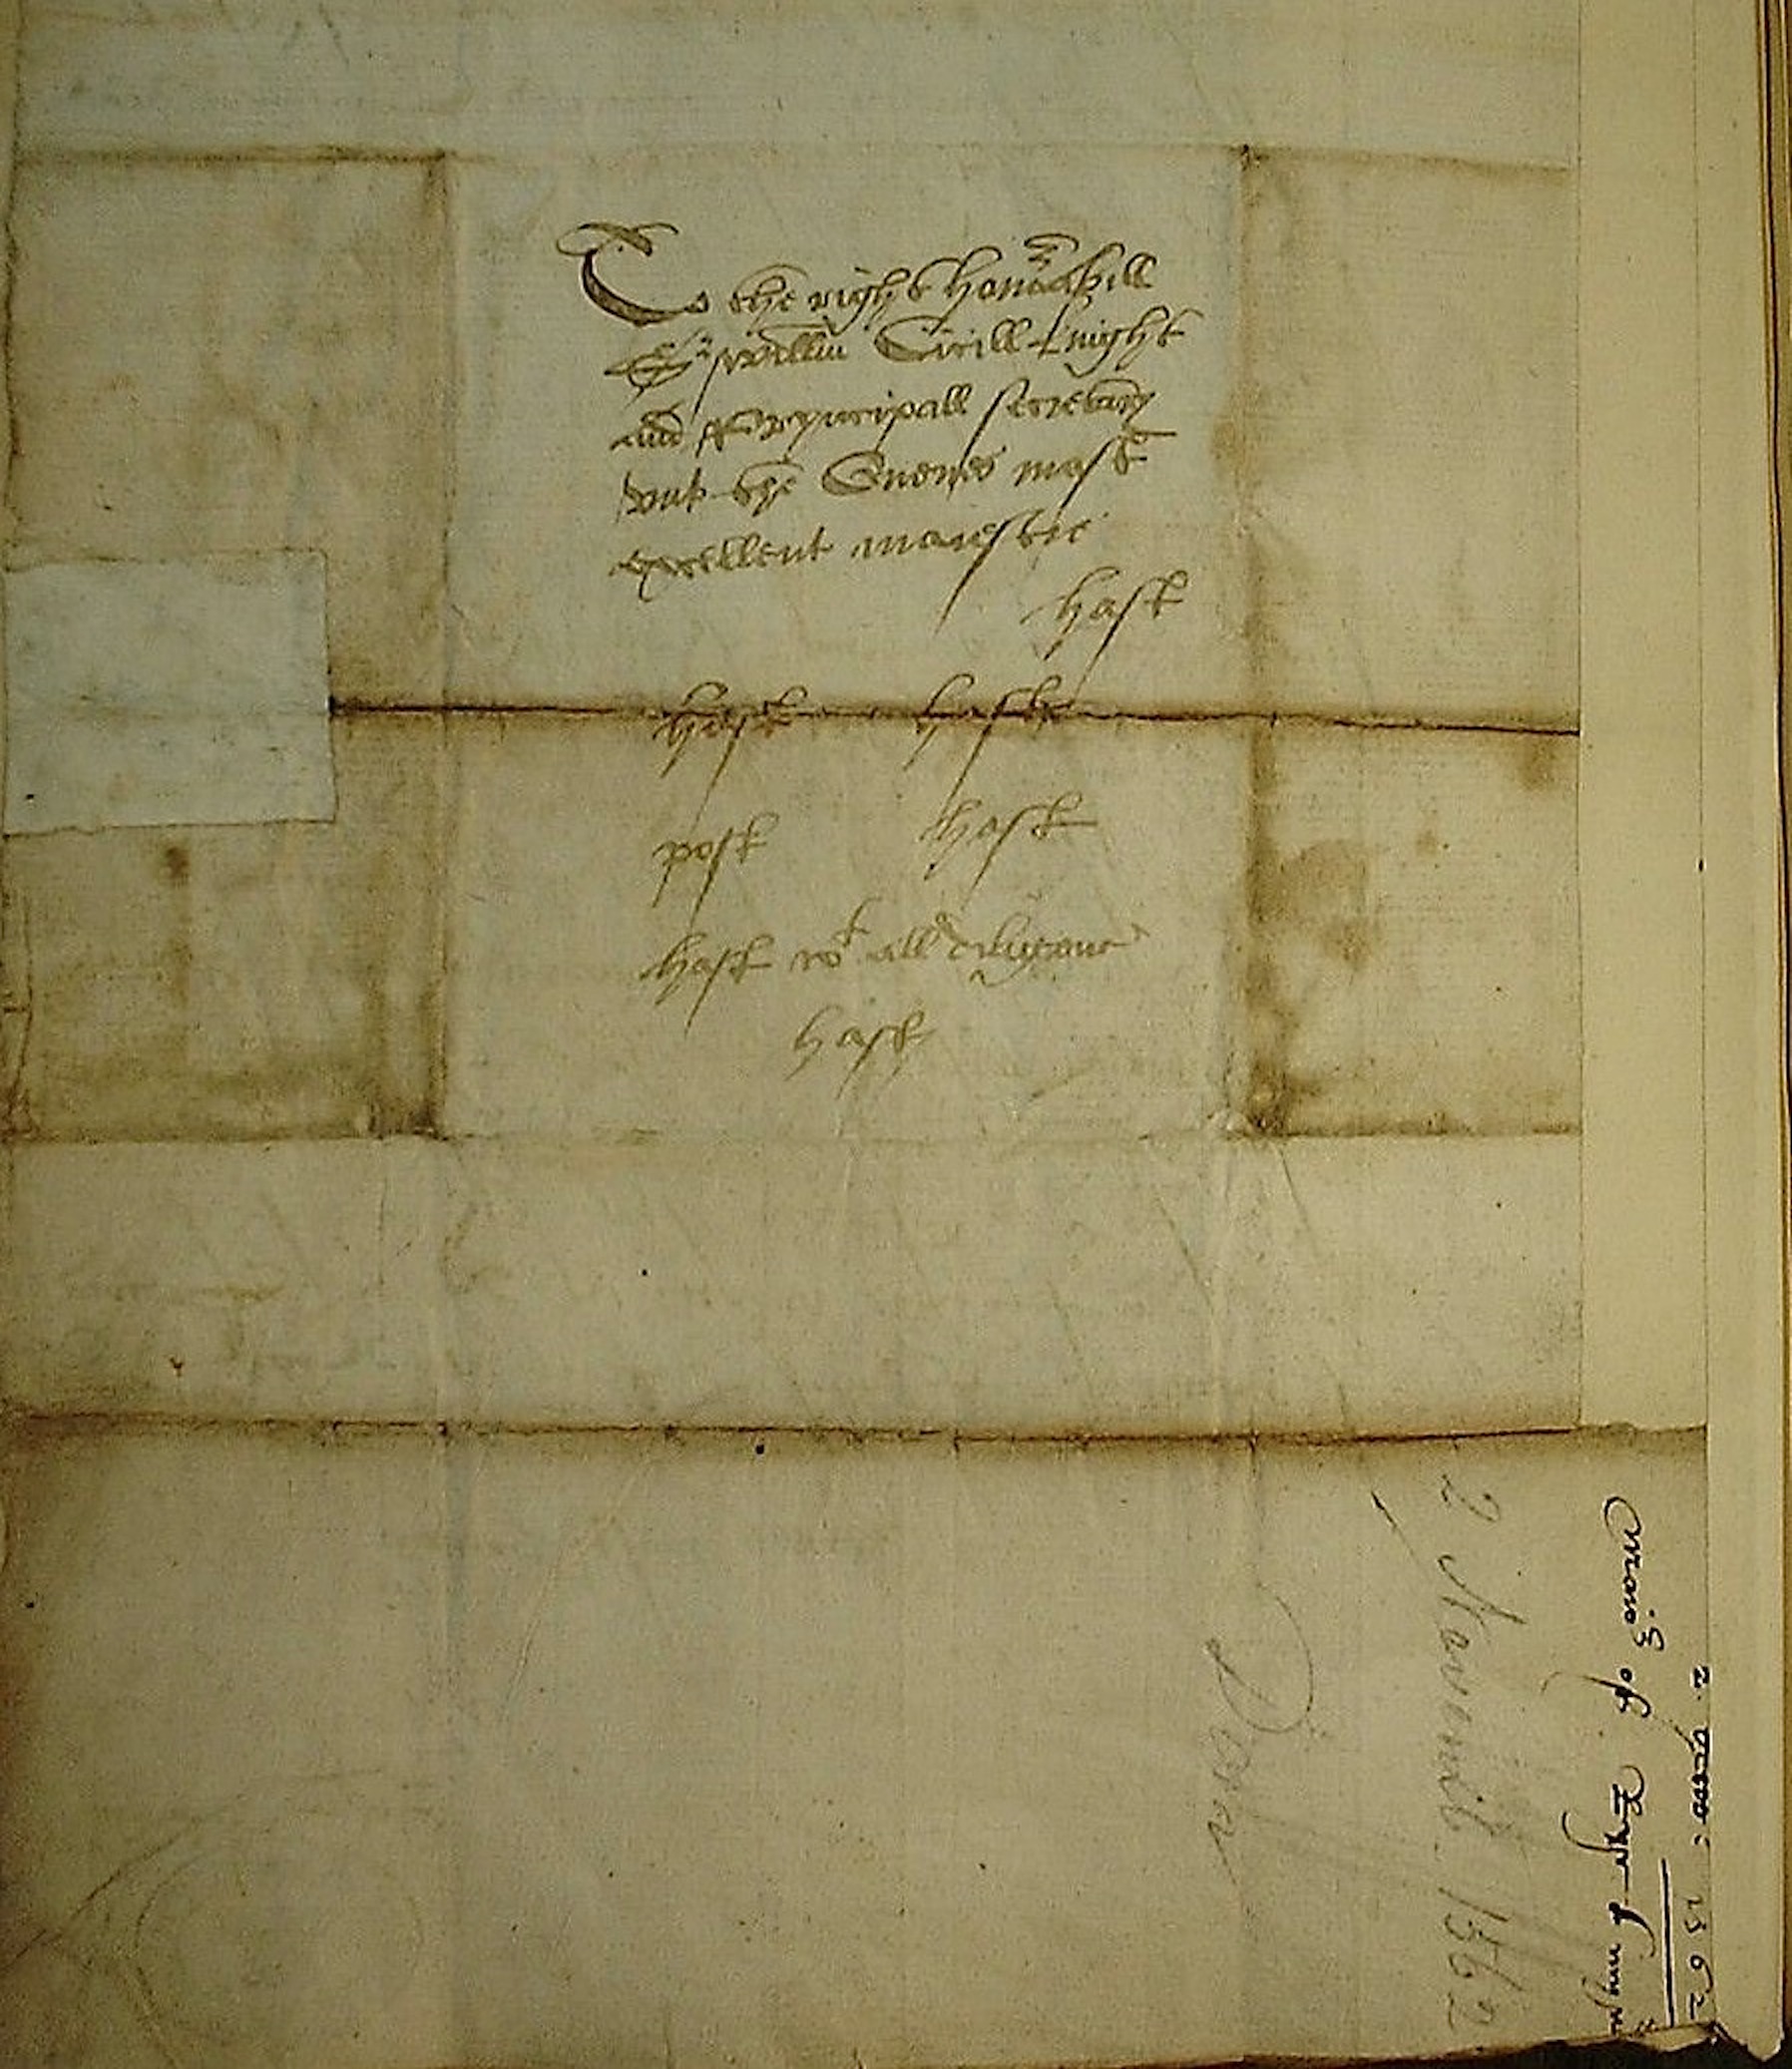 To the right honorabill
Sr Willm Cicill knight
and Pryncipall secretary
vnto the Quenes most
excellent maiestie
hast
hast hast
post hast
hast wt all diligence
hast
2 Novemb. 1562
2. 1562
of